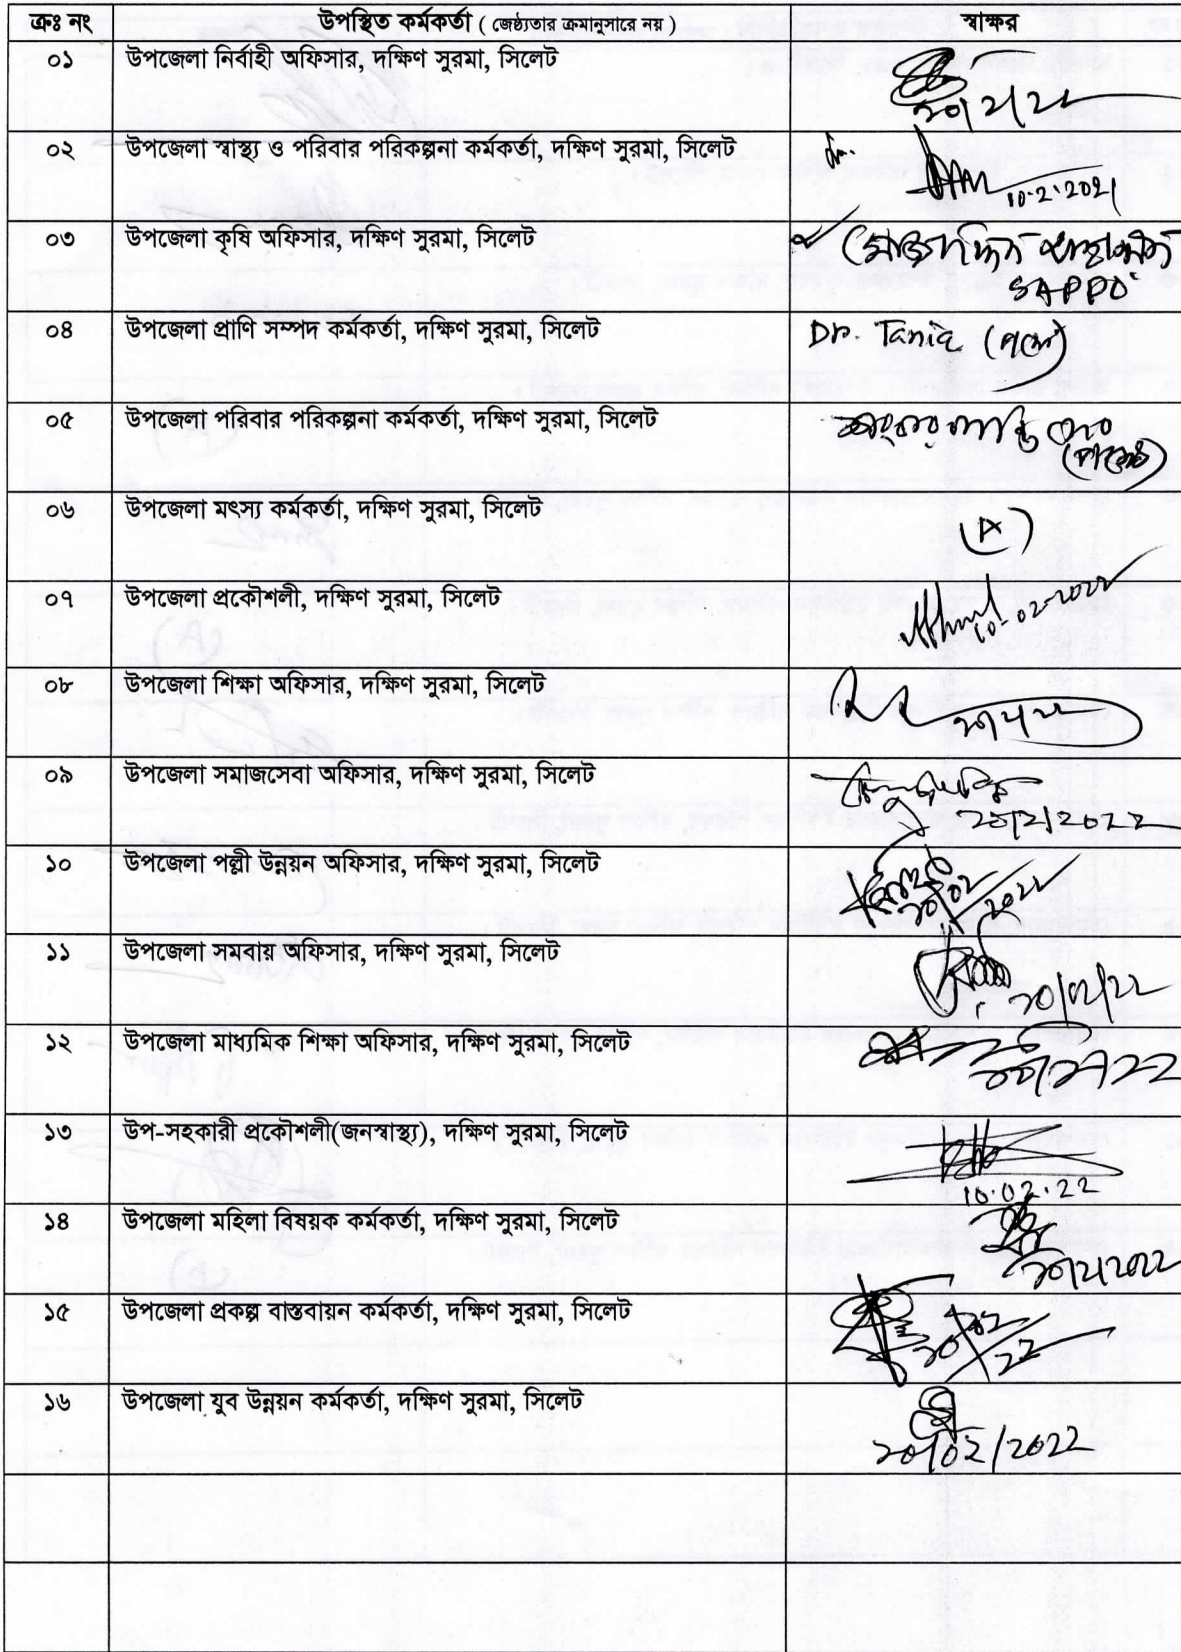 ক্রঃ নং উপস্থিত কর্মকর্তা ( জেষ্ঠ্যতার ক্রমানুসারে নয় ) স্বাক্ষর
০১ উপজেলা নির্বাহী অফিসার, দক্ষিণ সুরমা, সিলেট
০২ উপজেলা স্বাস্থ্য ও পরিবার পরিকল্পনা কর্মকর্তা, দক্ষিণ সুরমা, সিলেট
10.2.2021
০৩ উপজেলা কৃষি অফিসার, দক্ষিণ সুরমা, সিলেট
SAPPO
০৪ উপজেলা প্রাণি সম্পদ কর্মকর্তা, দক্ষিণ সুরমা, সিলেট Dr. Tania (পক্ষে)
০৫ উপজেলা পরিবার পরিকল্পনা কর্মকর্তা, দক্ষিণ সুরমা, সিলেট
০৬ উপজেলা মৎস্য কর্মকর্তা, দক্ষিণ সুরমা, সিলেট (A)
০৭ উপজেলা প্রকৌশলী, দক্ষিণ সুরমা, সিলেট 10-02-2022
০৮ উপজেলা শিক্ষা অফিসার, দক্ষিণ সুরমা, সিলেট
০৯ উপজেলা সমাজসেবা অফিসার, দক্ষিণ সুরমা, সিলেট
১০/২/২০২২
১০ উপজেলা পল্লী উন্নয়ন অফিসার, দক্ষিণ সুরমা, সিলেট
১১ উপজেলা সমবায় অফিসার, দক্ষিণ সুরমা, সিলেট
১০/০২/২২
১২ উপজেলা মাধ্যমিক শিক্ষা অফিসার, দক্ষিণ সুরমা, সিলেট
১৩ উপ-সহকারী প্রকৌশলী(জনস্বাস্থ্য), দক্ষিণ সুরমা, সিলেট
10.02.22
১৪ উপজেলা মহিলা বিষয়ক কর্মকর্তা, দক্ষিণ সুরমা, সিলেট
১০/২/২০২২
১৫ উপজেলা প্রকল্প বাস্তবায়ন কর্মকর্তা, দক্ষিণ সুরমা, সিলেট
১৬ উপজেলা যুব উন্নয়ন কর্মকর্তা, দক্ষিণ সুরমা, সিলেট
১০/০২/২০২২